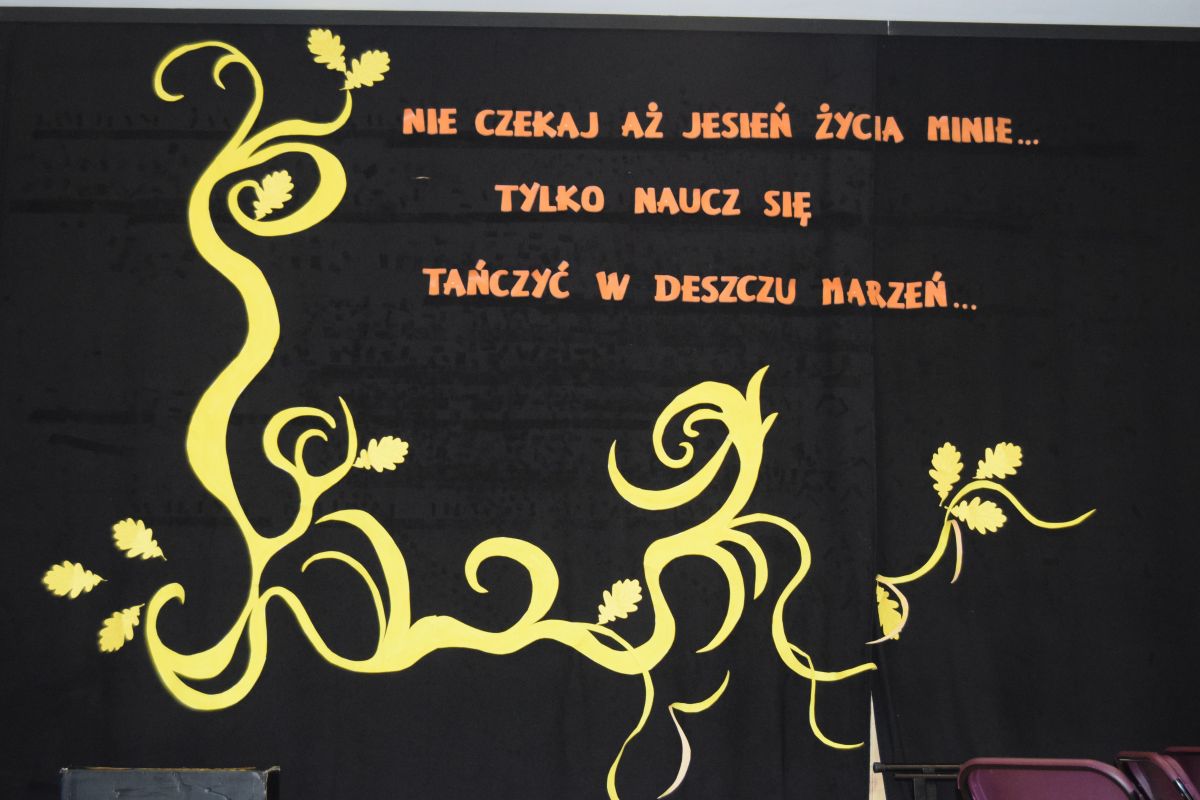 NIE CZEKAJ AŻ JESIEŃ ŻYCIA MINIE...
TYLKO NAUCZ SIĘ
TAŃCZYĆ W DESZCZU MARZEŃ...